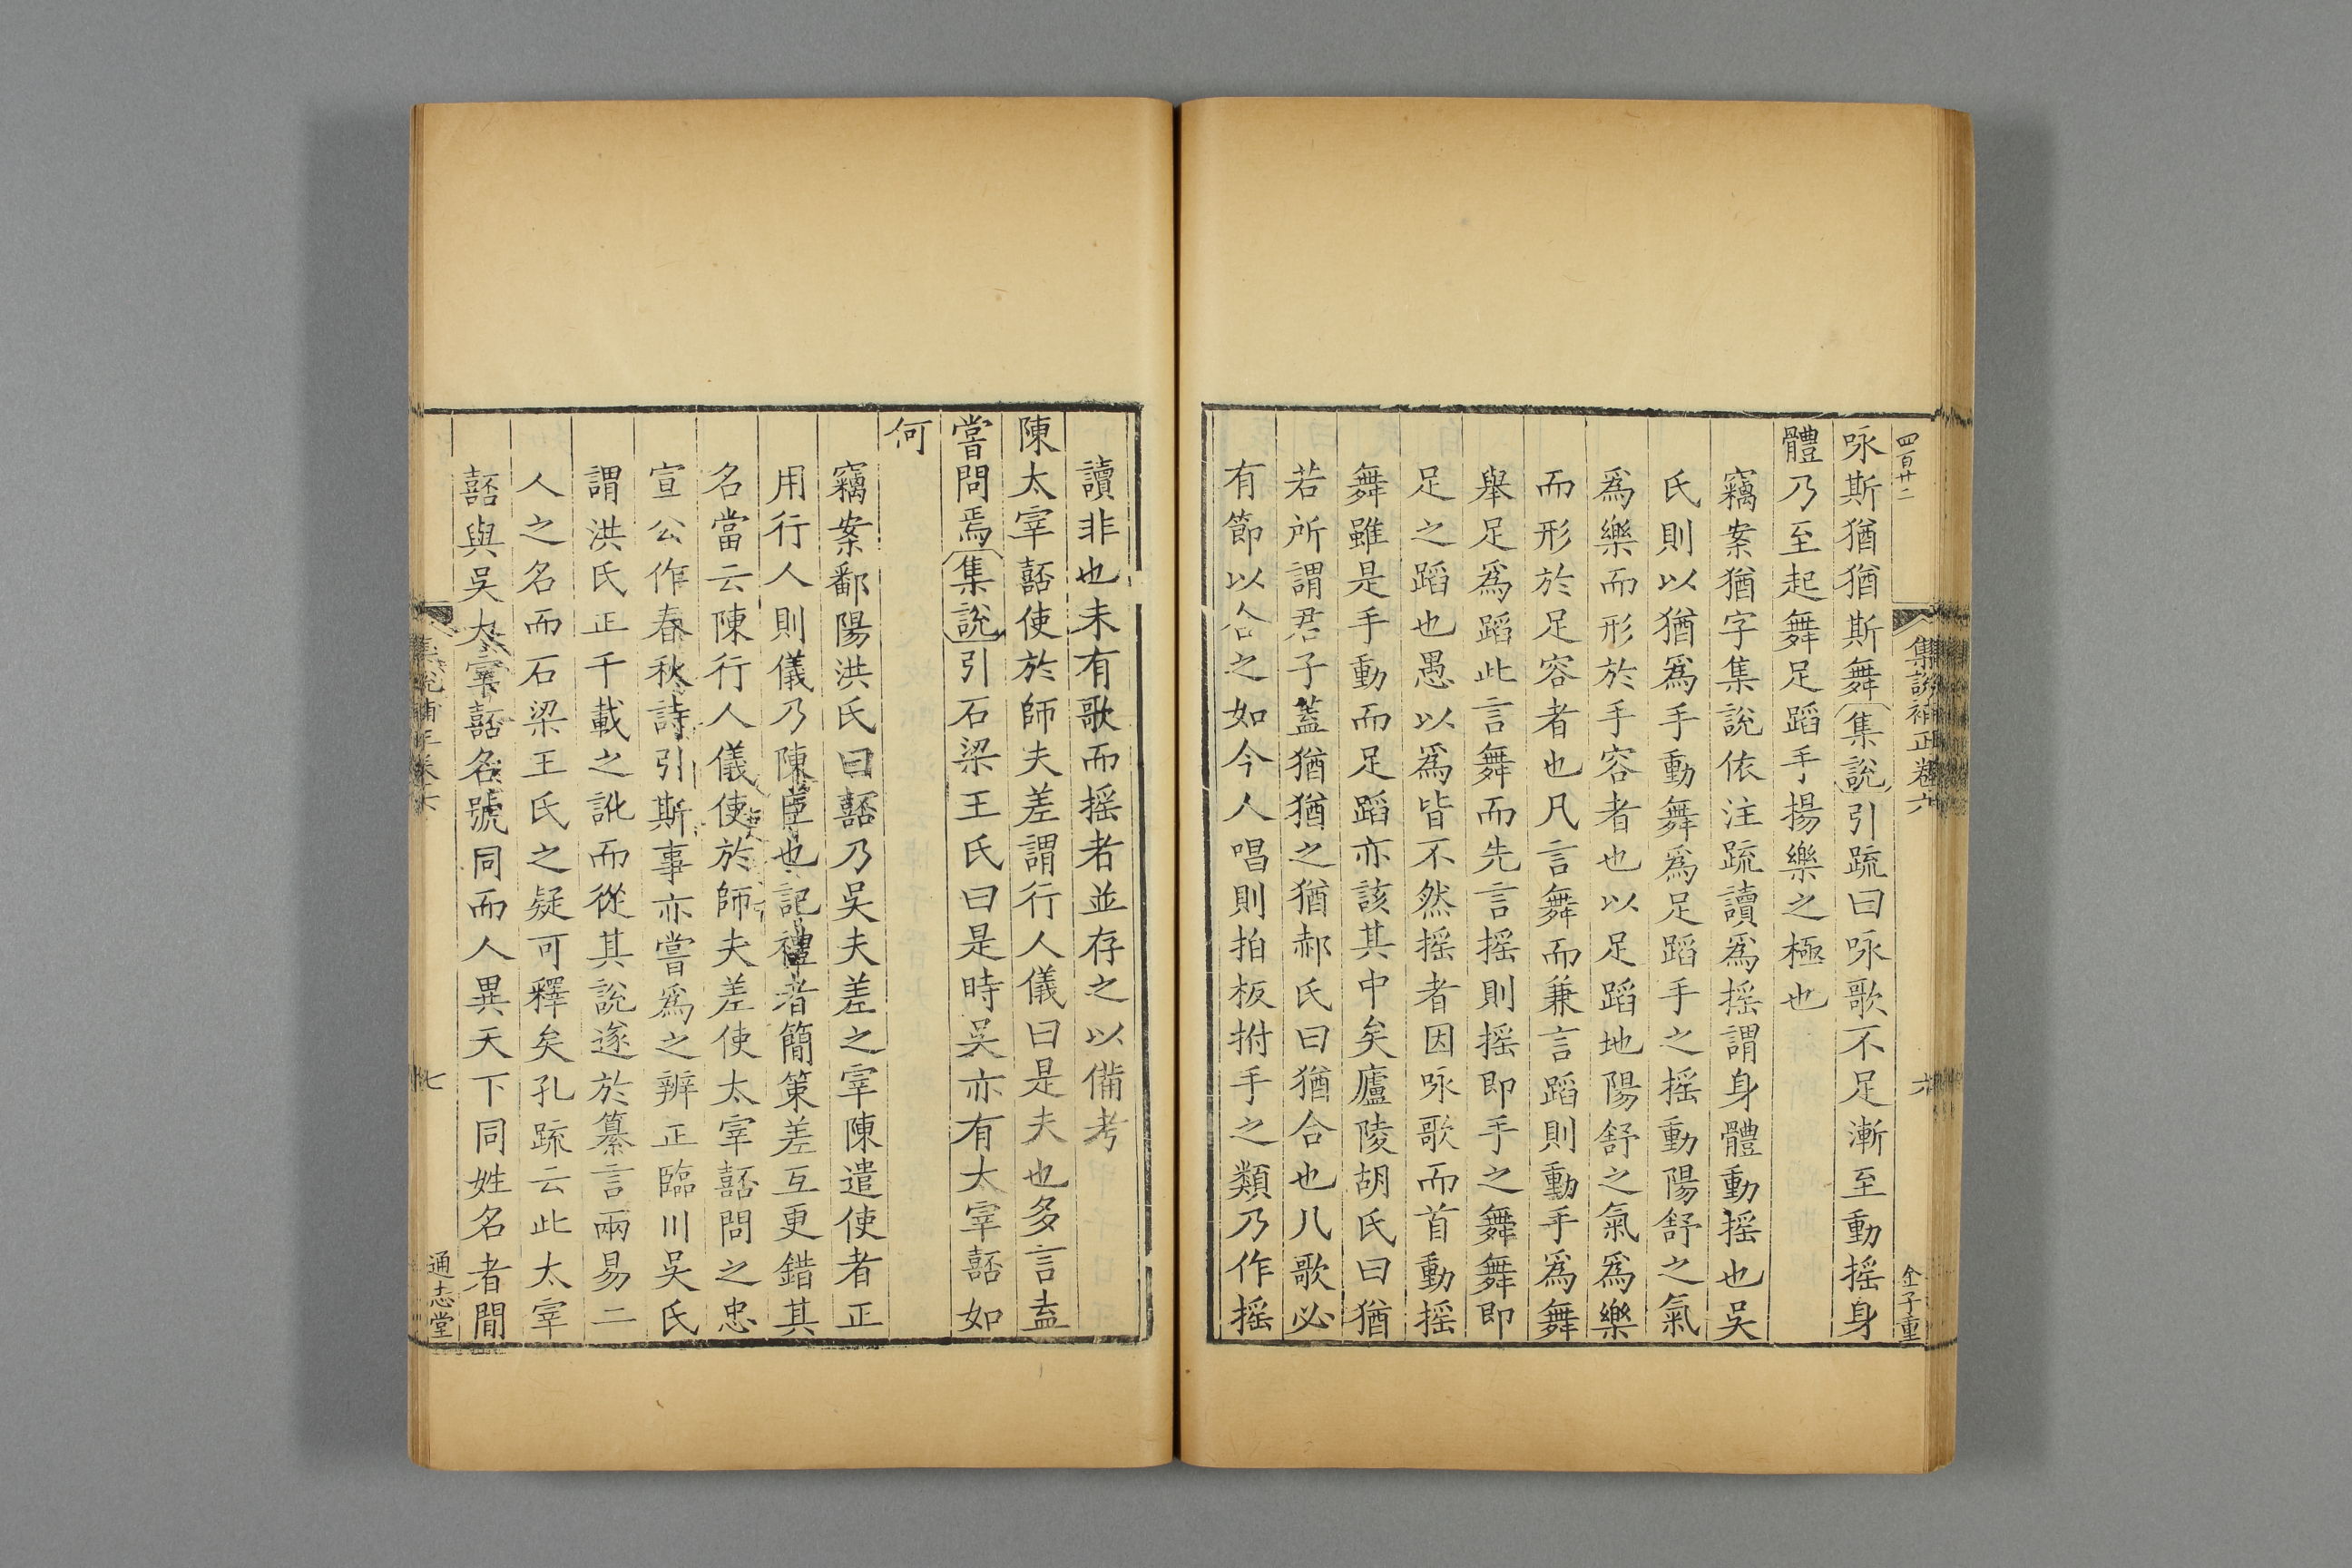 四百廿二
集說補正卷六
六
金子重
咏斯猶猶斯舞集說引疏曰咏歌不足漸至動摇身
體乃至起舞足蹈手揚樂之極也
竊案猶字集說依注疏讀爲摇謂身體動摇也吳
氏則以猶爲手動舞爲足蹈手之摇動陽舒之氣
爲樂而形於手容者也以足蹈地陽舒之氣爲樂
而形於足容者也凡言舞而兼言蹈則動手爲舞
舉足爲蹈此言舞而先言摇則摇即手之舞舞即
足之蹈也愚以爲皆不然摇者因咏歌而首動摇
舞雖是手動而足蹈亦該其中矣廬陵胡氏曰猶
若所謂君子蓋猶猶之猶郝氏曰猶合也凡歌必
有節以合之如今人唱則拍板拊手之類乃作摇
讀非也未有歌而摇者並存之以備考
陳太宰嚭使於師夫差謂行人儀曰是夫也多言盍
嘗問焉集說引石梁王氏曰是時吳亦有太宰嚭如
何
竊案鄱陽洪氏曰嚭乃吳夫差之宰陳遣使者正
用行人則儀乃陳臣也記禮者簡策差互更錯其
名當云陳行人儀使於師夫差使太宰嚭問之忠
宣公作春秋詩引斯事亦嘗爲之辨正臨川吳氏
謂洪氏正千載之訛而從其說遂於纂言兩易二
人之名而石梁王氏之疑可釋矣孔疏云此太宰
嚭與吳太宰嚭名號同而人異天下同姓名者間
集說補正卷六
七
通志堂